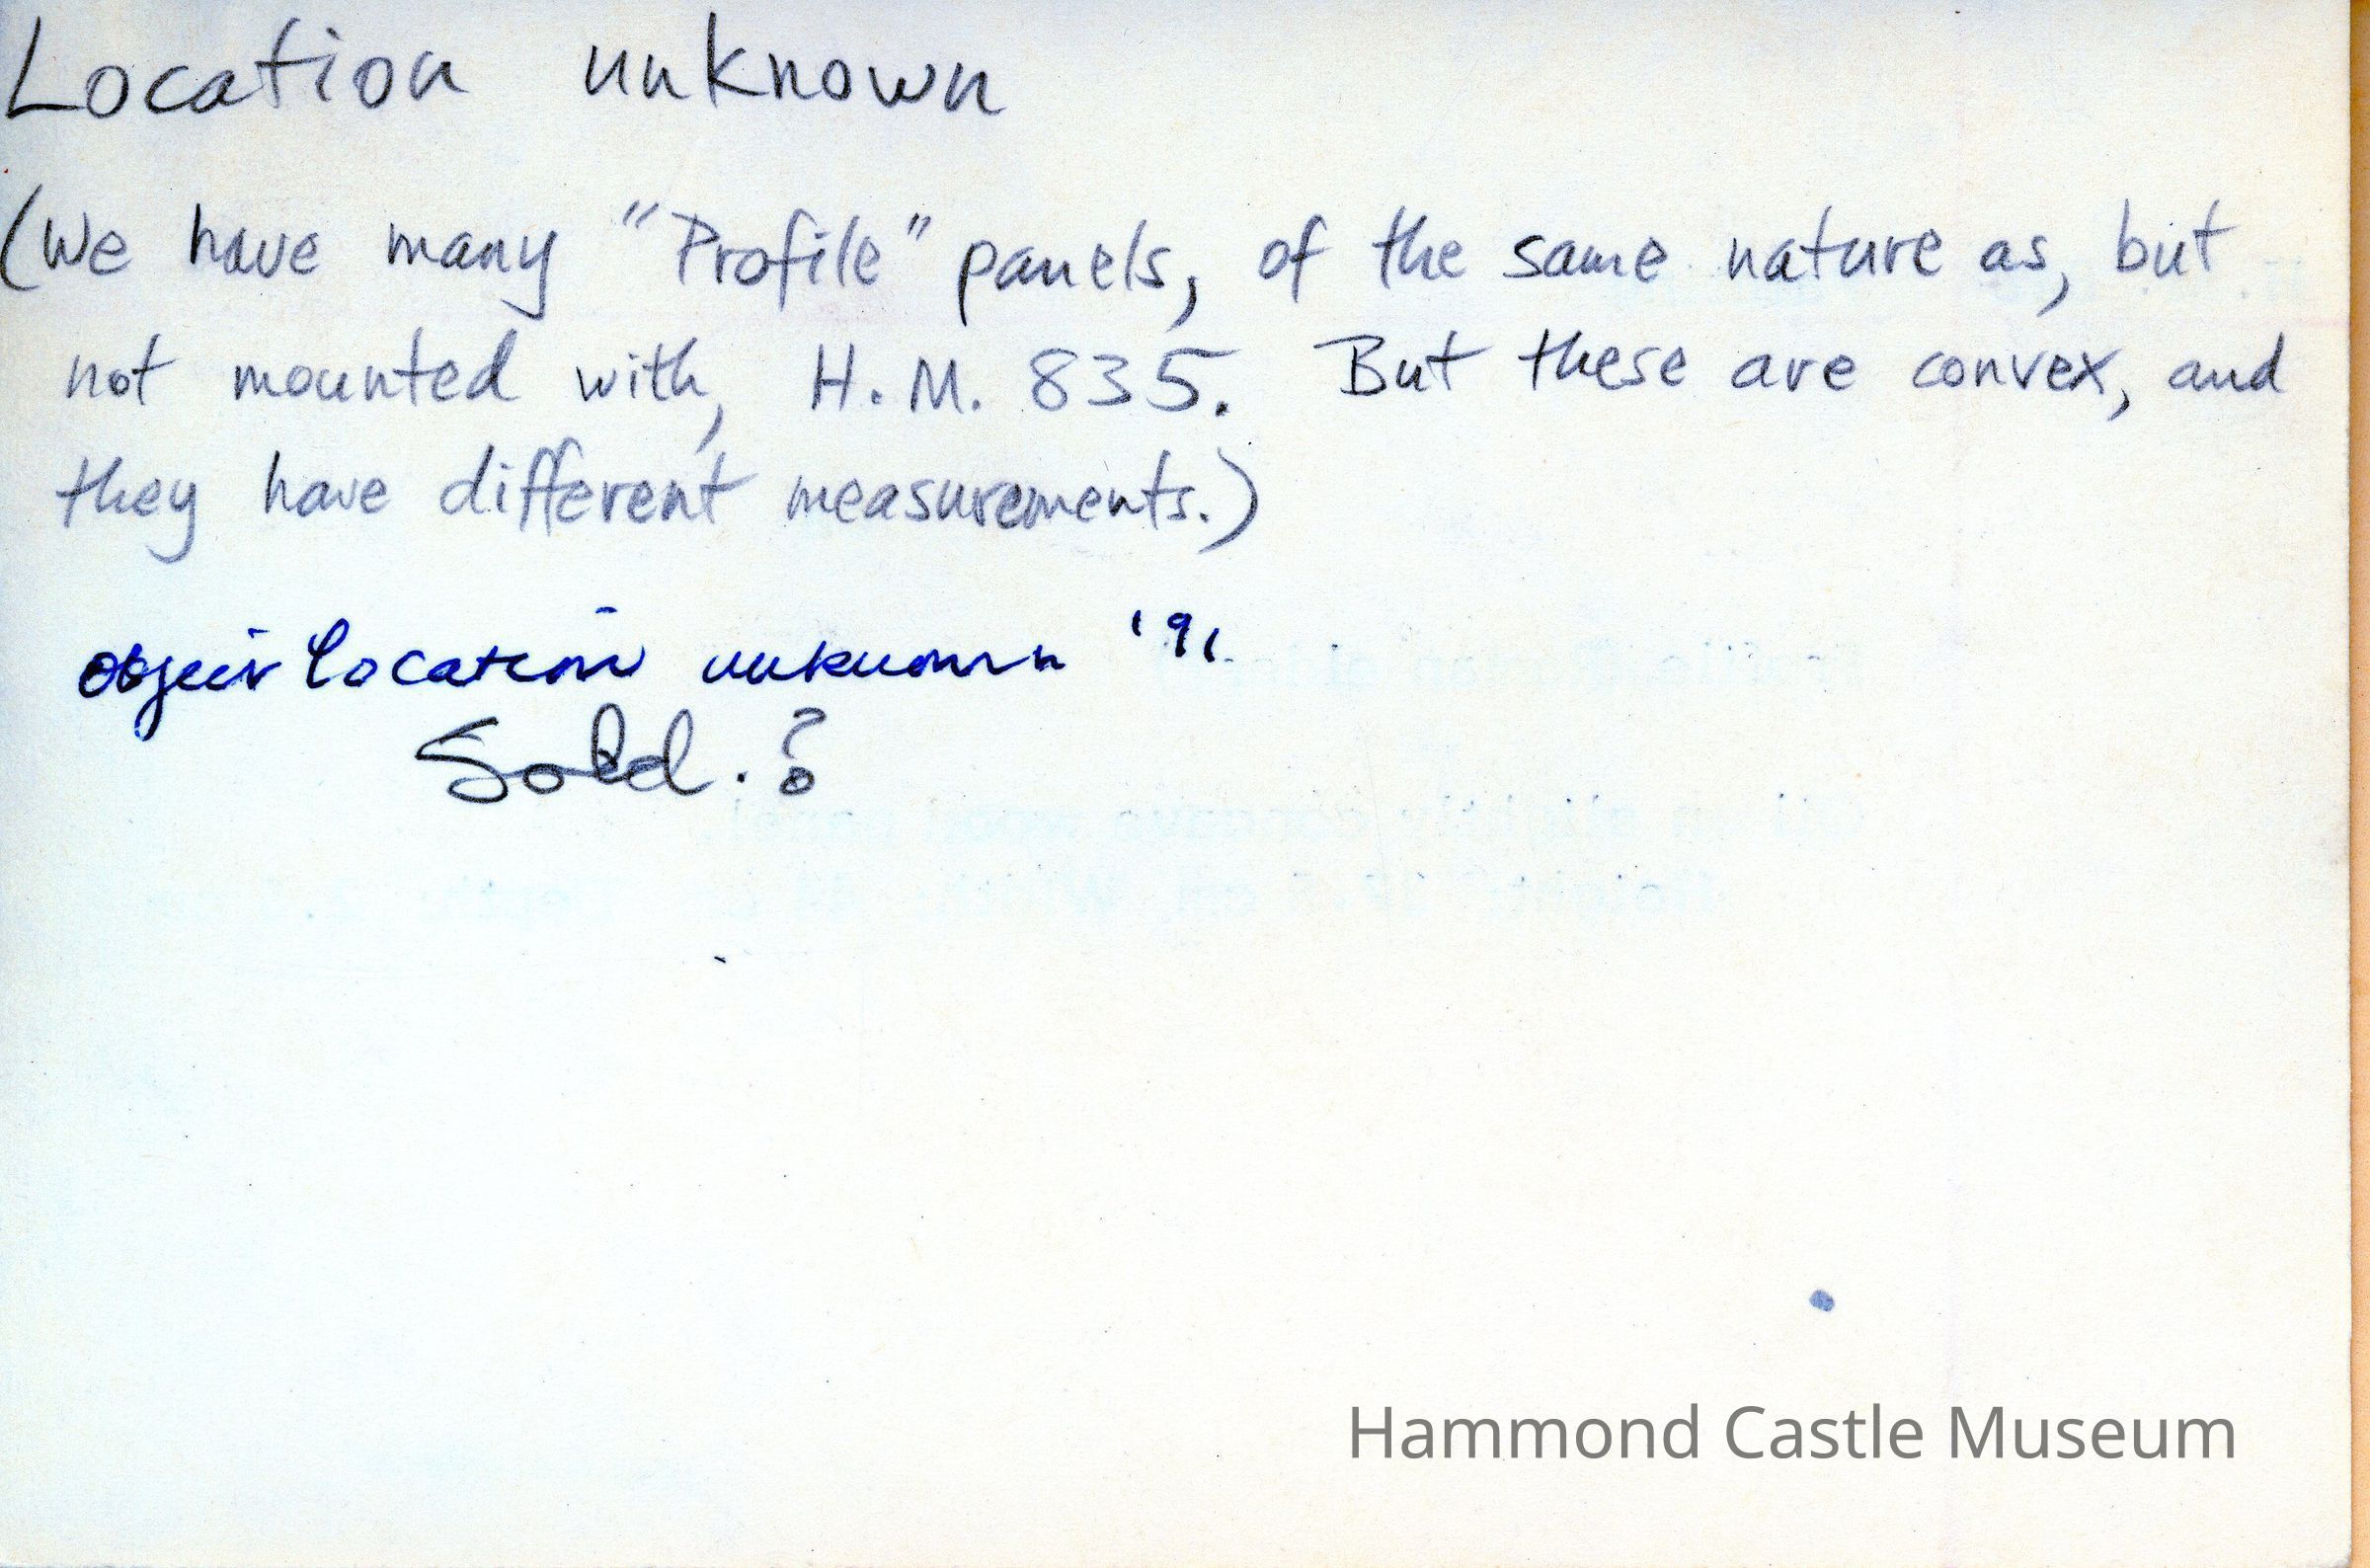 Location unknown
(We have many "Profile" panels, of the same nature as, but
not mounted with, H.M. 835. But these are convex, and
they have different measurements.)
object location unknown '91
Sold.?
Hammond Castle Museum